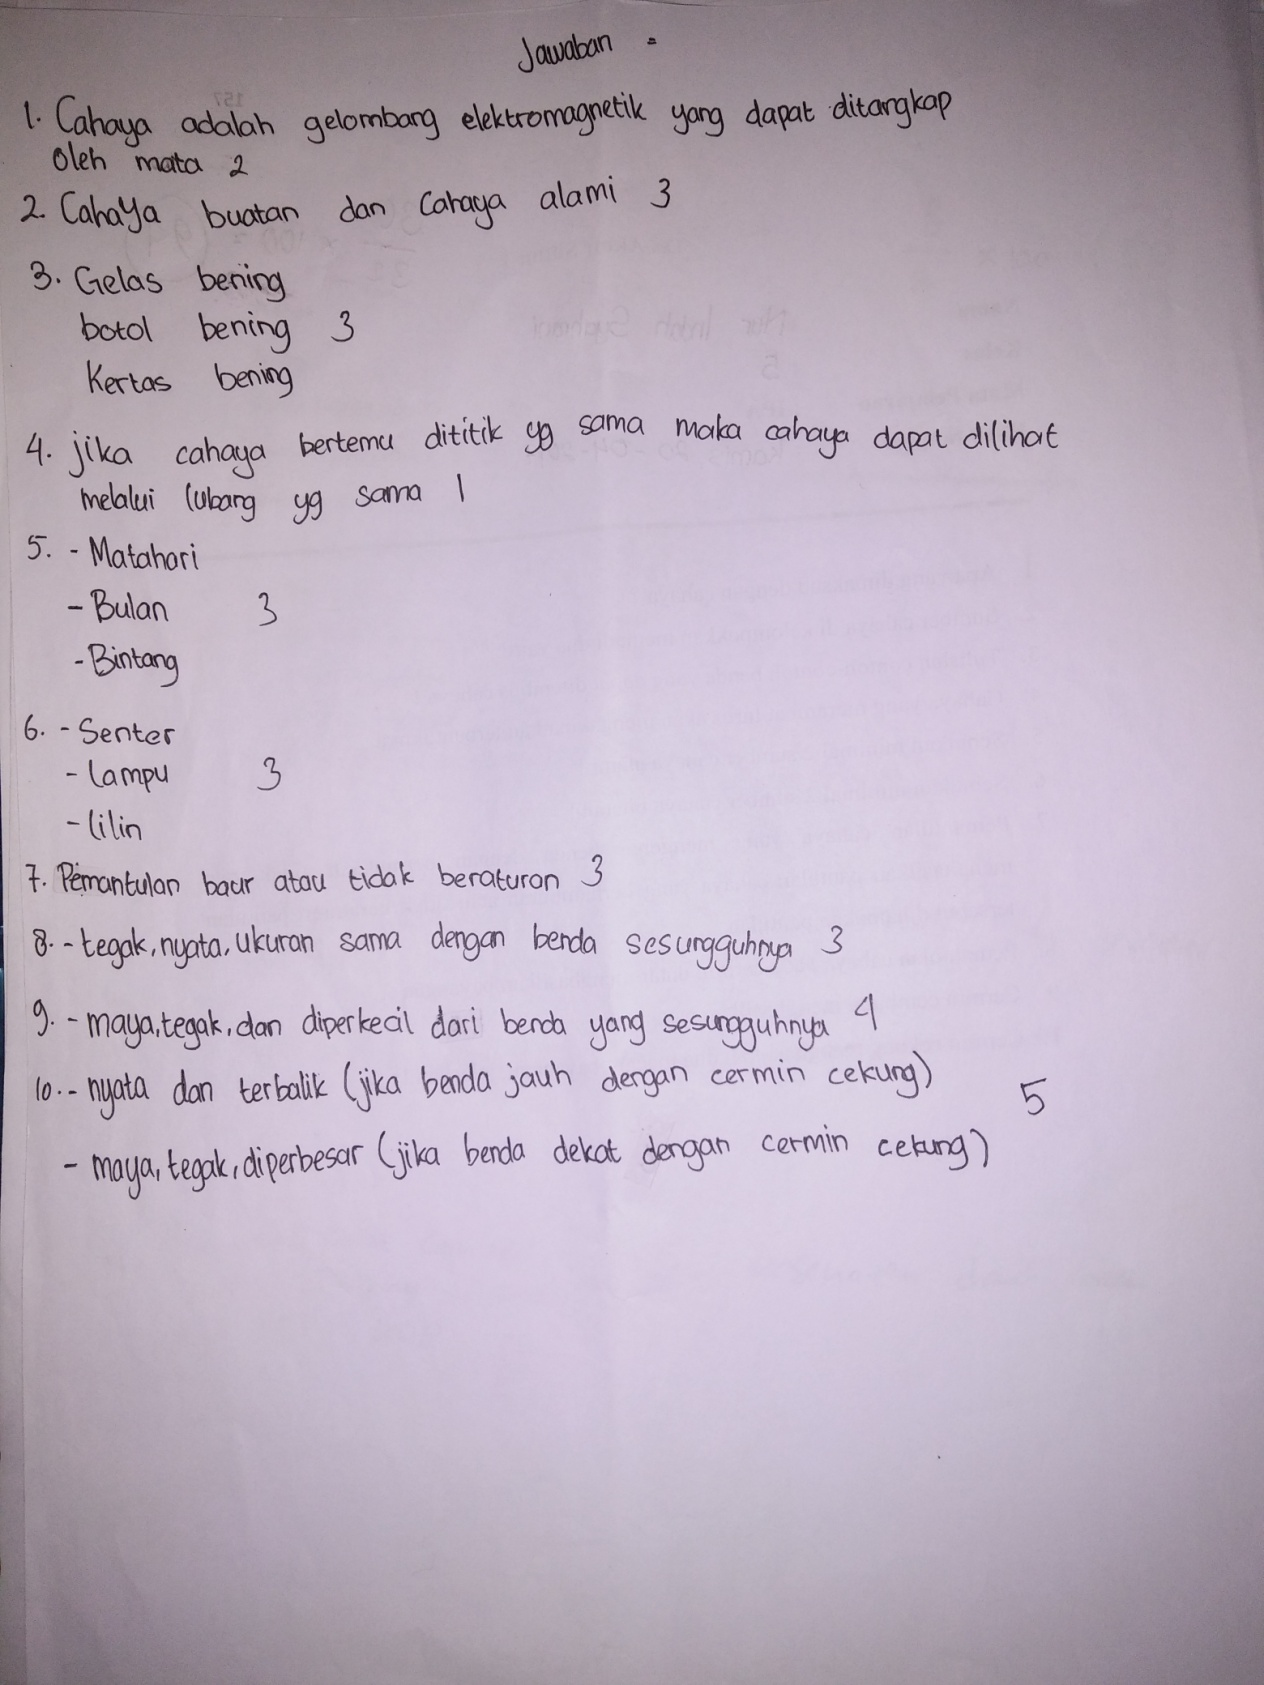 Jawaban =
1. Cahaya adalah gelombang elektromagnetik yang dapat ditangkap
oleh mata 2
2. Cahaya buatan dan Cahaya alami 3
3. Gelas bening
botol bening 3
Kertas bening
4. jika cahaya bertemu dititik yg sama maka cahaya dapat dilihat
melalui lubang yg sama 1
5. - Matahari
- Bulan 3
- Bintang
6. - Senter
- lampu 3
- lilin
7. Pemantulan baur atau tidak beraturan 3
8. - tegak, nyata, ukuran sama dengan benda sesungguhnya 3
9. - maya, tegak, dan diperkecil dari benda yang sesungguhnya 4
10. - nyata dan terbalik (jika benda jauh dengan cermin cekung)
5
- maya, tegak, diperbesar (jika benda dekat dengan cermin cekung)